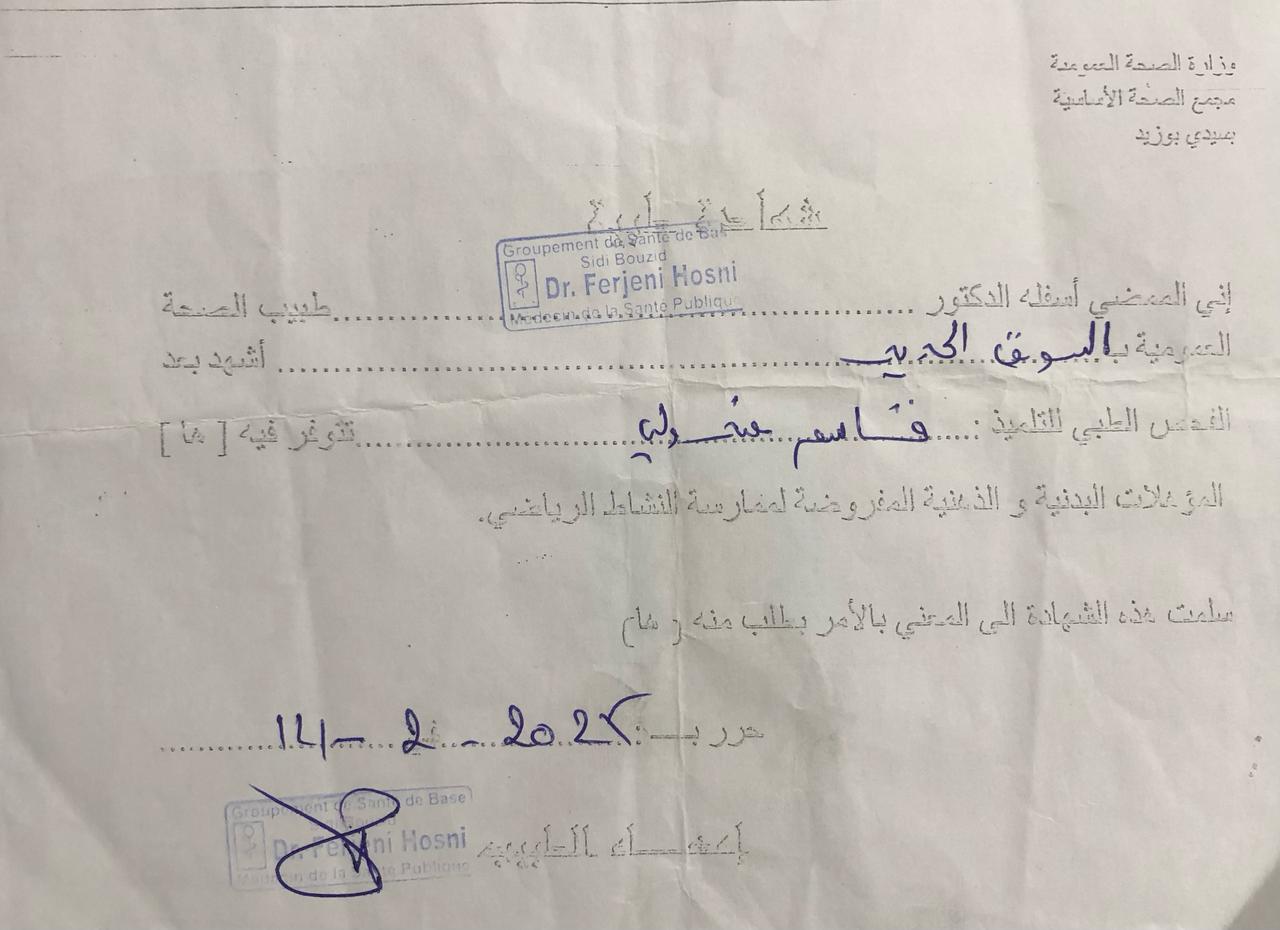 وزارة الصحة العمومية
مجمع الصحة الأساسية
بسيدي بوزيد
شهادة طبية
Groupement de Santé de Bas
Sidi Bouzid
Dr. Ferjeni Hosni
Médecin de la Santé Publique
إني الممضي أسفله الدكتور ........ طبيب الصحة
العمومية بالسوق الجديد ........ أشهد بعد
الفحص الطبي للتلميذ : .... قاسم ........ تتوفر فيه [ ها ]
المؤهلات البدنية و الذهنية المفروضة لممارسة النشاط الرياضي.
سلمت هذه الشهادة الى المعني بالأمر بطلب منه ( ها)
حرر بـ : 14 - 2 -
إمضاء الطبيب
Groupement de Santé de Base
Sidi Bouzid
Dr. Ferjeni Hosni
Médecin de la Santé Publique